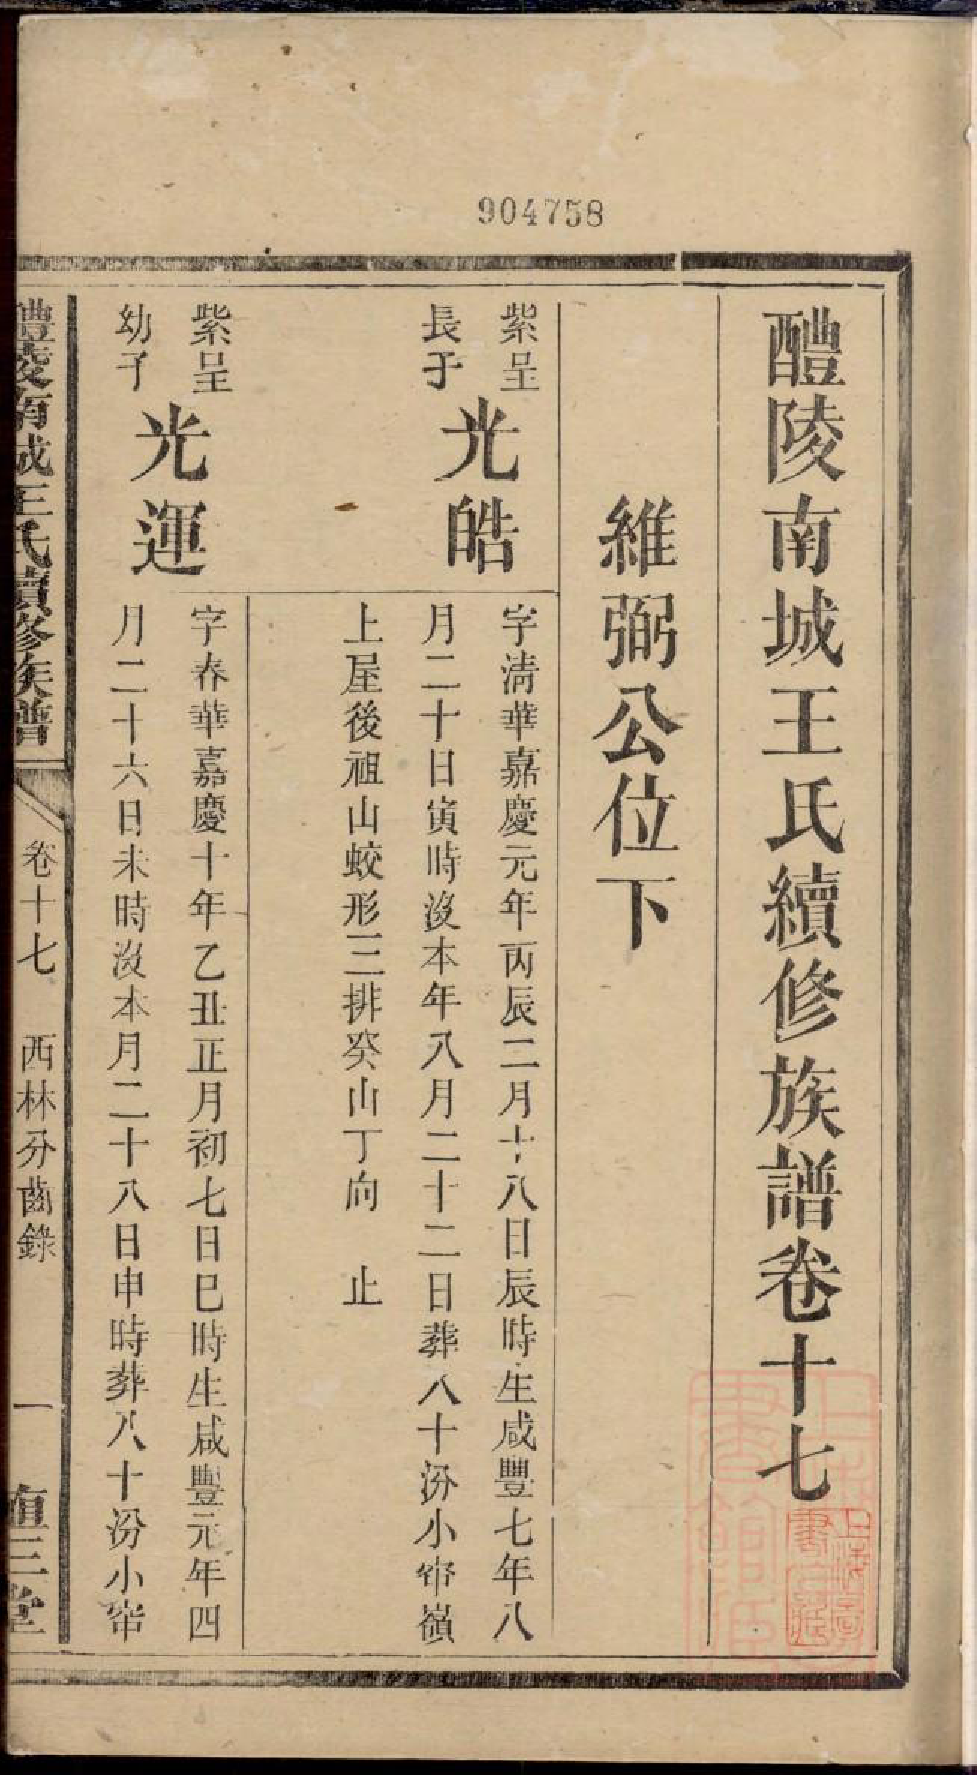 904758
醴陵南城王氏續修族譜卷十七
維弼公位下
紫呈
長子
光皓
字清華嘉慶元年丙辰二月十八日辰時生咸豐七年八
月二十日寅時沒本年八月二十二日葬八十汾小帘嶺
上屋後祖山蛟形三排癸山丁向　止
紫呈
幼子
光運
字春華嘉慶十年乙丑正月初七日巳時生咸豐元年四
月二十六日未時沒本月二十八日申時葬八十汾小帘
醴陵南城王氏續修族譜
卷十七　西林分齒錄
一
三堂